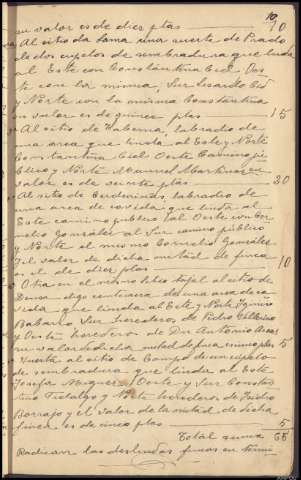 10
su valor es de diez ptas 10
Al sitio da Lama una suerte de Prado
de dos cuartos de sembradura que linda
al Este con Constantina Cid, Oes
te con la misma, Sur Cid
y Norte con la misma Constantina
su valor es de quince ptas 15
Al sitio de Taberna, labradio de
una area que linda al Este y Norte
Constantina Cid Oeste Camino pú
blico y Norte Manuel Martinez su
valor es de veinte ptas 20
Al sitio de labradio de
una area de linda al
Este camino publico al Oeste con Cor
nelio González al Sur camino público
y Norte el mismo Cornelio González
y el valor de dicha mitad de finca
es el de diez ptas 10
Otra en el mismo sitio digo al sitio de
digo centenera de una area de ca
vida que linda al Este y Norte
Sur herederos de Pedro
y Oeste herederos de Dn Antonio
su valor de dicha mitad de finca es cinco ptas 5
Huerta al sitio de Campo de un cuarto
de sembradura que linda al Este
Josefa Oeste y Sur Constan
tino Fidalgo y Norte herederos de Isidro
Borrajo y el valor de la mitad de dicha
finca es de cinco ptas 5
Total suma 65
Radican las deslindadas fincas en termi